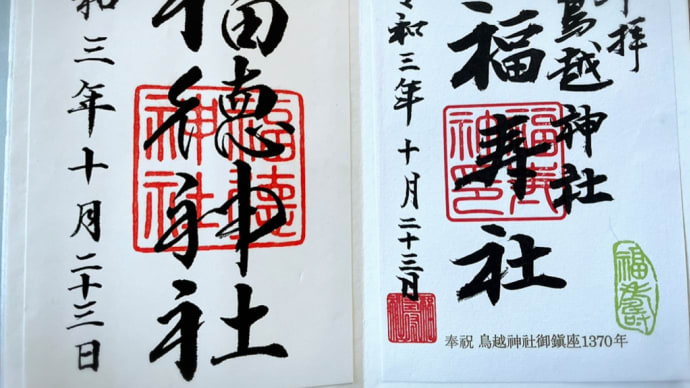 福徳神社
和三年十月二十三日
福徳神社
拝
鳥越神社
福寿社
令和三年十月二十三日
福寿
奉祝 鳥越神社御鎮座1370年